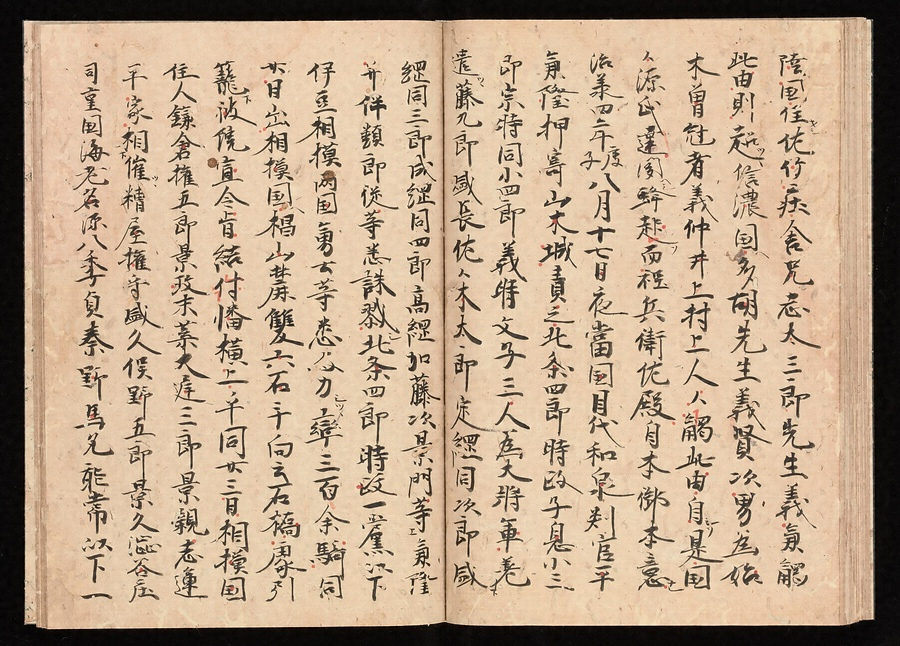 陸国住佐竹疾舎兄志太三郎先生義氣觸
此由則越信濃国多胡先生義賢次男為始
木曽冠者義仲井上村上人々觸此由自是国
々源氏違聞馳赴而程兵衛佐殿自本郷本意
治美四年庚子八月十七日夜當国目代和泉判官平
氣隆押寄山木城責之北条四郎時政子息小三
郎宗時同小四郎義時父子三人為大将軍差
遣藤九郎盛長佐々木太郎定綱同次郎盛
綱同三郎成綱同四郎高綱加藤次景門等氣隆
并伴類郎従等悉誅戮北条四郎時政一黨以下
伊豆相摸両国勇士等悉合力率三百余騎同
廿日出相摸国椙山麓雙六石千向云石橋處引
籠被院宣令旨結付幡横上ケ平同廿三日相摸国
住人鎌倉權五郎景政末葉大庭三郎景親志運
平家相催糟屋權守盛久俣野五郎景久澁谷庄
司重国海老名源八季貞秦野馬允能常以下一